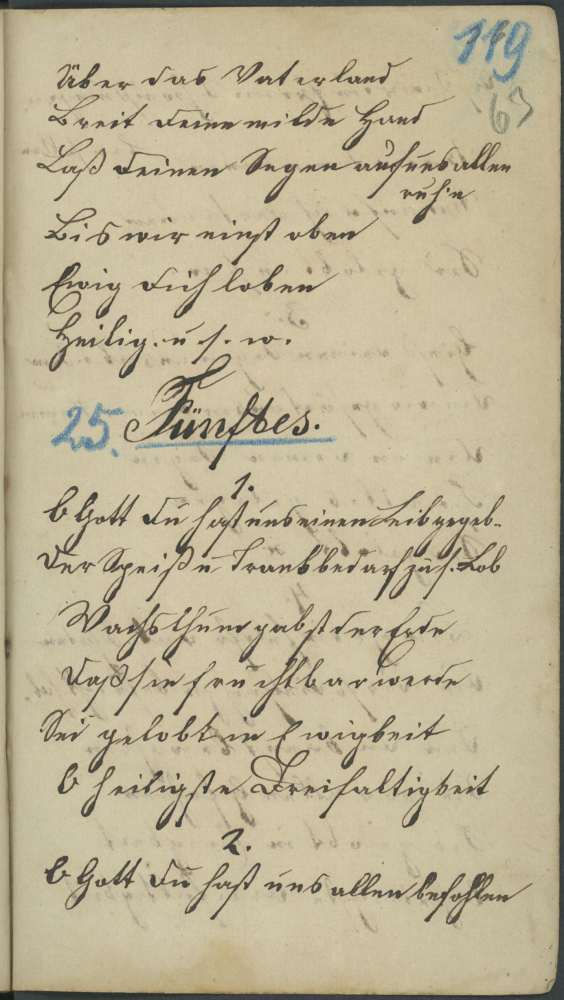 119
63
Über das Vaterland
Breit deine milde Hand
Laß deinen Segen auf uns allen
ruh'n
Bis wir einst oben
Ewig dich loben
Heilig. u. s. w.
25. Fünftes.
1.
O Gott du hast uns einen Leib gegeb.
Der Speiß u Trank bedarf zu s. Leb
Wachsthum gabst der Erde
Daß sie fruchtbar werde
Sei gelobt in Ewigkeit
O heiligste Dreifaltigkeit
2.
O Gott du hast uns allen befohlen